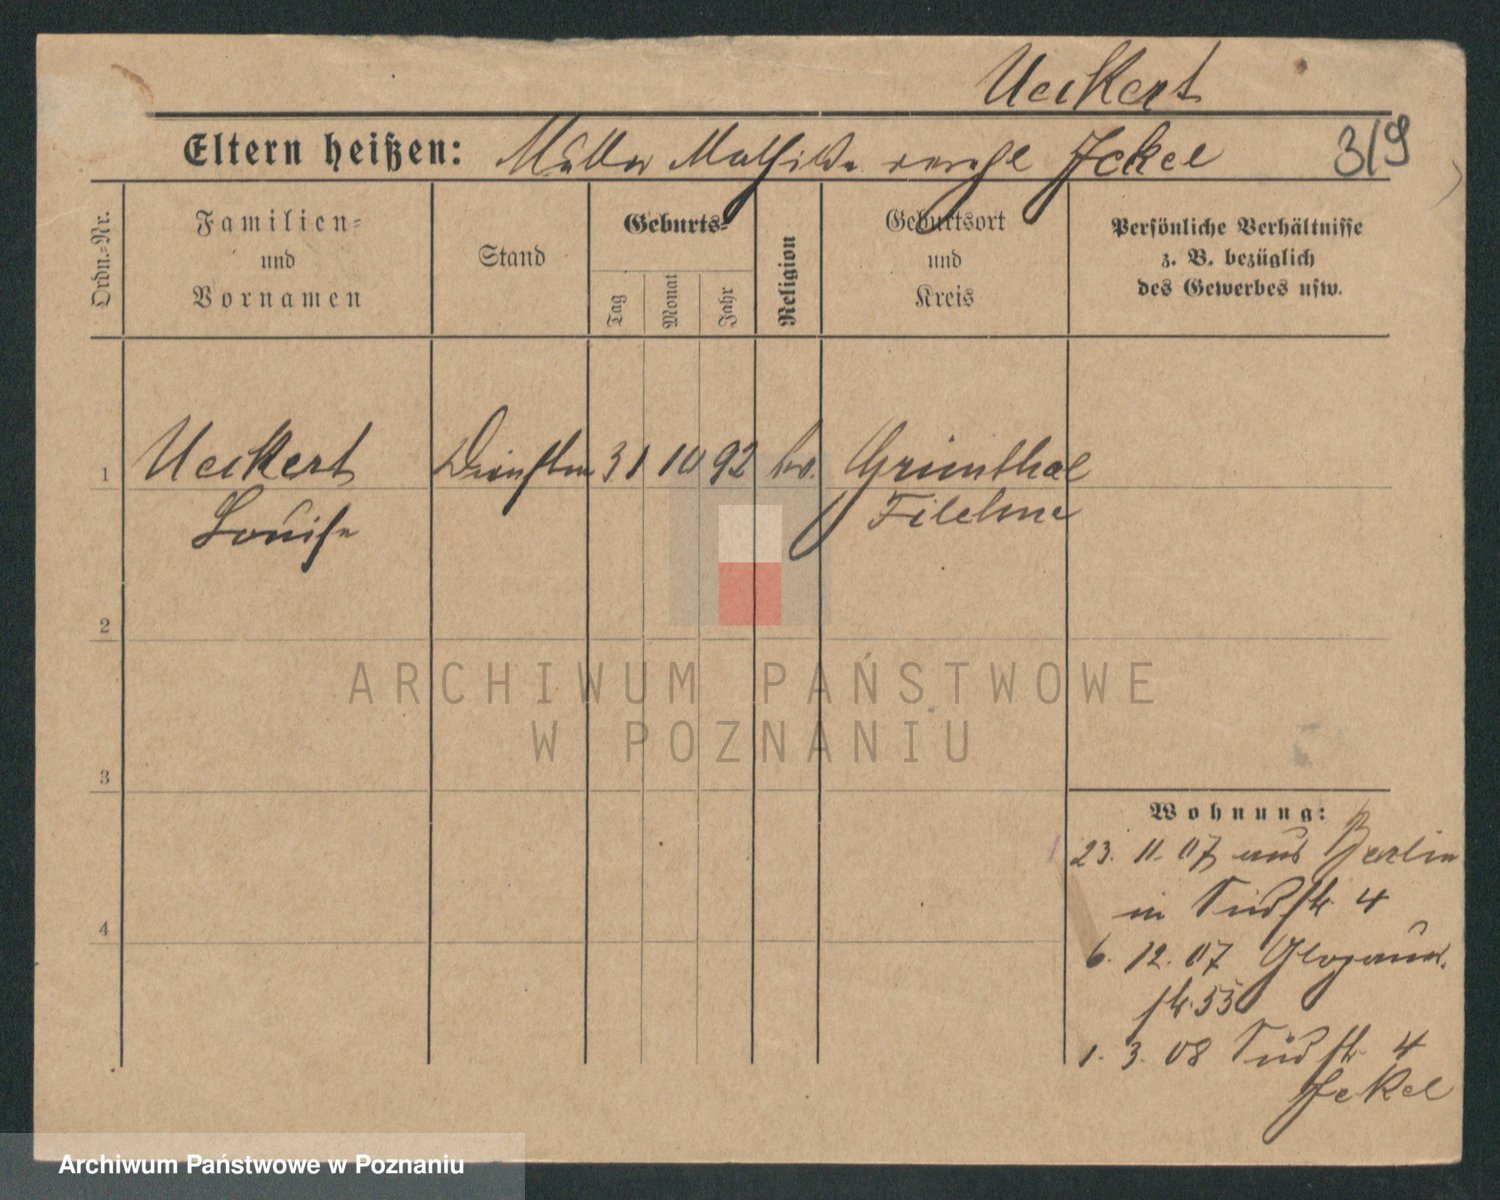 Ueckert
Eltern heißen: Mutter Mathilde verehl Jekel
319
Ordn.-Nr.
Familien-
und
Vornamen
Stand
Geburts-
Tag
Monat
Jahr
Religion
Geburtsort
und
Kreis
Persönliche Verhältnisse
z. B. bezüglich
des Gewerbes usw.
1 Ueckert Dienstm 31 10 92 ev. Grünthal
Louise Filehne
2
3
4
Wohnung:
23. 11. 07 aus Berlin
in Südstr 4
6. 12. 07 Glogauer
str. 55
1. 3. 08 Südstr 4
Jekel
ARCHIWUM PAŃSTWOWE
W POZNANIU
Archiwum Państwowe w Poznaniu